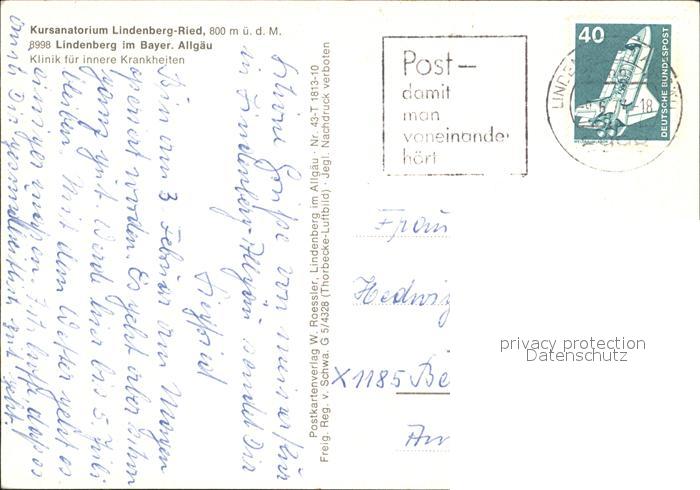 Kursanatorium Lindenberg-Ried, 800 m ü. d. M.
8998 Lindenberg im Bayer. Allgäu
Klinik für innere Krankheiten
Grüße von meiner Kur
in Lindenberg-Allgäu sendet Dir
Bin am 3. Februar am Magen
operiert worden. Es geht aber schon
ganz gut. Werde hier bis 5. Juli
bleiben. Mit dem Wetter geht es
einigermaßen. Ich hoffe, dass es
auch Dir gesundheitlich gut geht.
Postkartenverlag W. Roessler, Lindenberg im Allgäu · Nr. 43-T 1813-10
Freig. Reg. v. Schwa. G 5/4328 (Thorbecke-Luftbild) · Jegl. Nachdruck verboten
Post-
damit
man
voneinander
hört
LINDEN
18
40
DEUTSCHE BUNDESPOST
Frau
Hedwig
X1185 Be
privacy protection
Datenschutz